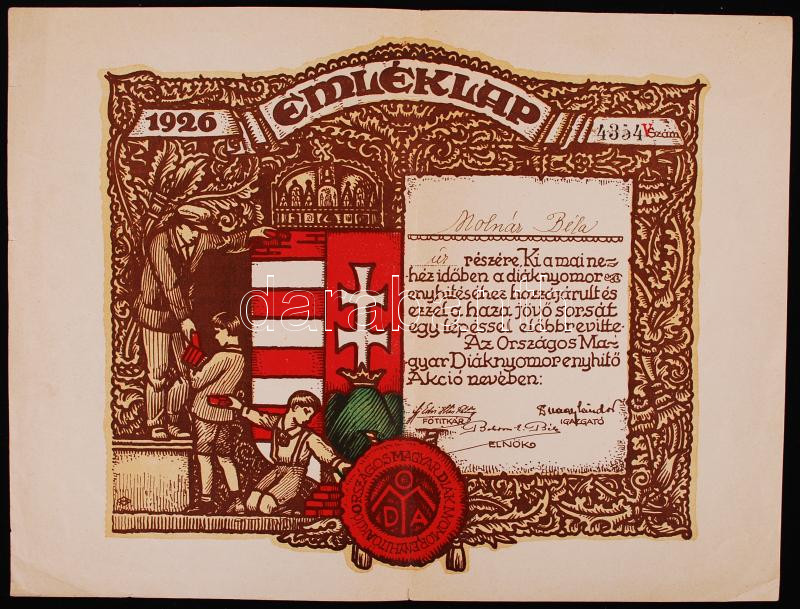 EMLÉKLAP
1926
4354 V. Szám
Molnár Béla
úr részére, Ki a mai ne-
héz időben a diáknyomor
enyhítéséhez hozzájárult és
ezzel a haza jövő sorsát
egy lépéssel előbbre vitte.
Az Országos Ma-
gyar Diáknyomorenyhitő
Akció nevében:
FŐTITKÁR
IGAZGATÓ
ELNÖK
ORSZÁGOS MAGYAR DIÁKNYOMORENYHITŐ AKCIÓ
D A
darabanth